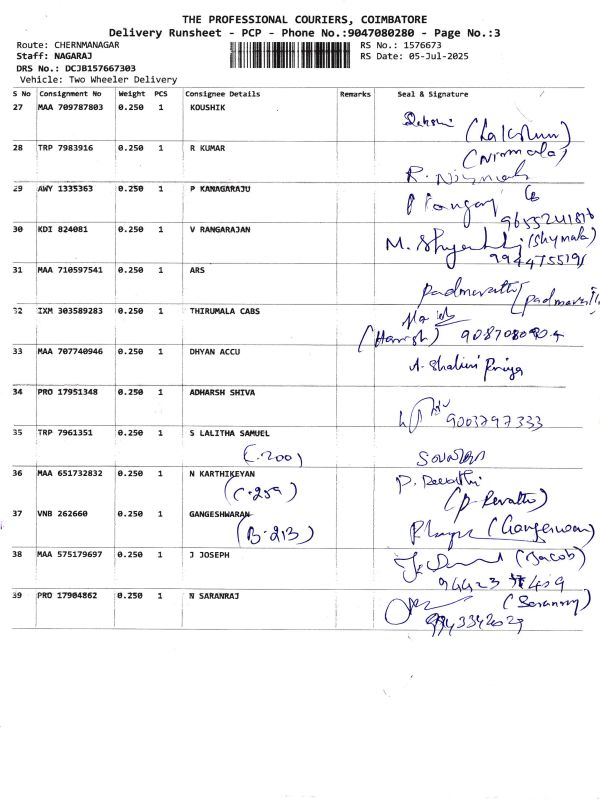 THE PROFESSIONAL COURIERS, COIMBATORE
Delivery Runsheet - PCP - Phone No.:9047080280 - Page No.:3
Route: CHERNMANAGAR RS No.: 1576673
Staff: NAGARAJ RS Date: 05-Jul-2025
DRS No.: DCJB157667303
Vehicle: Two Wheeler Delivery
S No Consignment No Weight PCS Consignee Details Remarks Seal & Signature
27 MAA 709787803 0.250 1 KOUSHIK
28 TRP 7983916 0.250 1 R KUMAR
(Nirmala)
R. Nirmala
29 AWY 1335363 0.250 1 P KANAGARAJU
30 KDI 824081 0.250 1 V RANGARAJAN
M. (Shymala)
9944755191
31 MAA 710597541 0.250 1 ARS
Padmavathi
32 IXM 303589283 0.250 1 THIRUMALA CABS
(Harish)
33 MAA 707740946 0.250 1 DHYAN ACCU
A. Shalini Priya
34 PRO 17951348 0.250 1 ADHARSH SHIVA
9003797333
35 TRP 7961351 0.250 1 S LALITHA SAMUEL
C-200)
36 MAA 651732832 0.250 1 N KARTHIKEYAN
P. Revathi
(C-259)
(P. Revathi)
37 VNB 262660 0.250 1 GANGESHWARAN
(B-213)
38 MAA 575179697 0.250 1 J JOSEPH
(Jacob)
39 PRO 17904862 0.250 1 N SARANRAJ